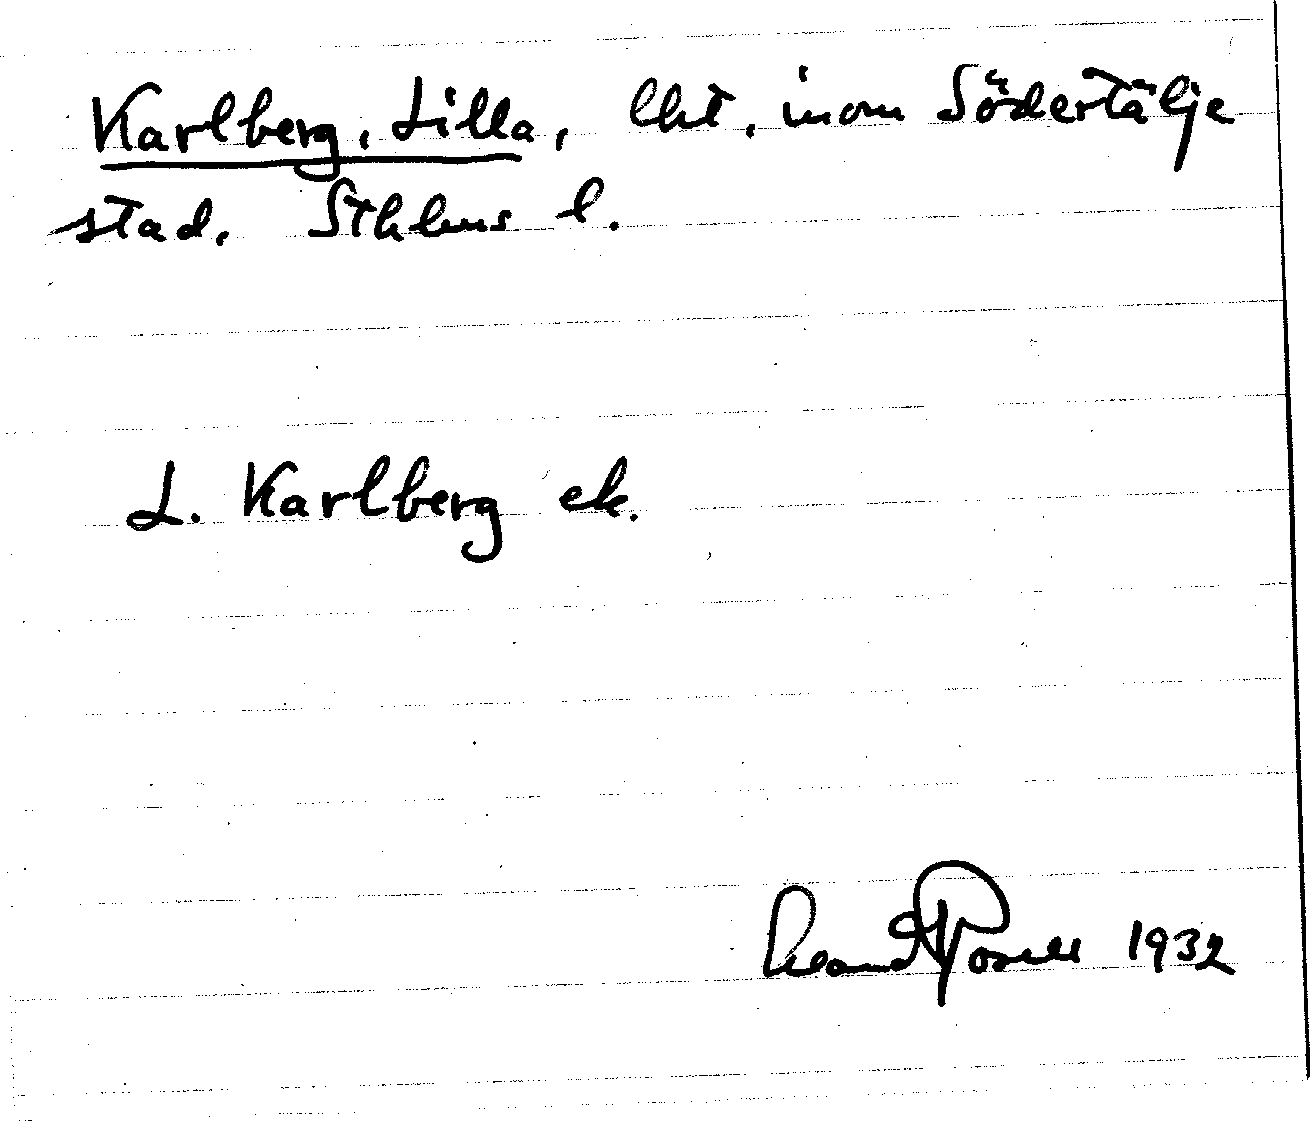 Karlberg, Lilla, lht, inom Södertälje
stad. Sthlms l.
L. Karlberg ek.
1932